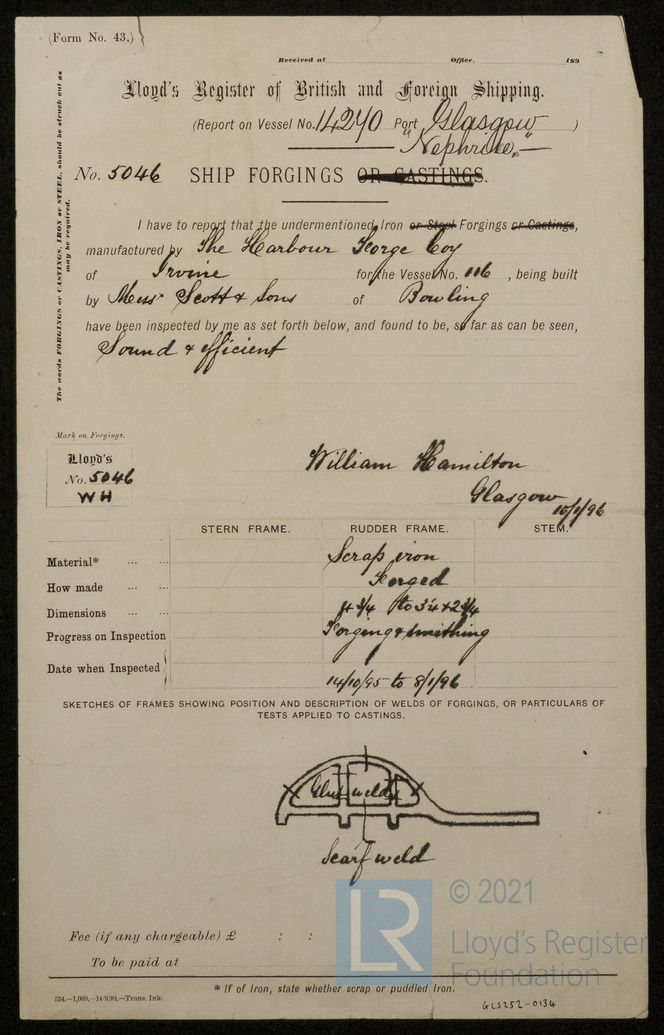 (Form No. 43.)
Received at Office, 189
Lloyd's Register of British and Foreign Shipping.
(Report on Vessel No. 14240 Port Glasgow )
"Nephrite"
No. 5046 SHIP FORGINGS OR CASTINGS.
The words FORGINGS or CASTINGS, IRON or STEEL, should be struck out as
may be required.
I have to report that the undermentioned Iron or Steel Forgings or Castings,
manufactured by The Harbour Forge Coy
of Irvine for the Vessel No. 116 , being built
by Messrs Scott & Sons of Bowling
have been inspected by me as set forth below, and found to be, so far as can be seen,
Sound & efficient
Mark on Forgings.
Lloyd's
No. 5046
WH
William Hamilton
Glasgow
10/1/96
STERN FRAME. RUDDER FRAME. STEM.
Material* ... ... Scrap iron
How made ... ... Forged
Dimensions ... ... 4 3/4 to 3 1/4 & 2 3/4
Progress on Inspection Forging & smithing
Date when Inspected 14/10/95 to 8/1/96
SKETCHES OF FRAMES SHOWING POSITION AND DESCRIPTION OF WELDS OF FORGINGS, OR PARTICULARS OF
TESTS APPLIED TO CASTINGS.
Glut welds
Scarf weld
Fee (if any chargeable) £ : :
To be paid at
* If of Iron, state whether scrap or puddled Iron.
534.—1,000.—14/9/94.—Trans. Ink.
GLS252-0134
LR
© 2021
Lloyd's Register
Foundation